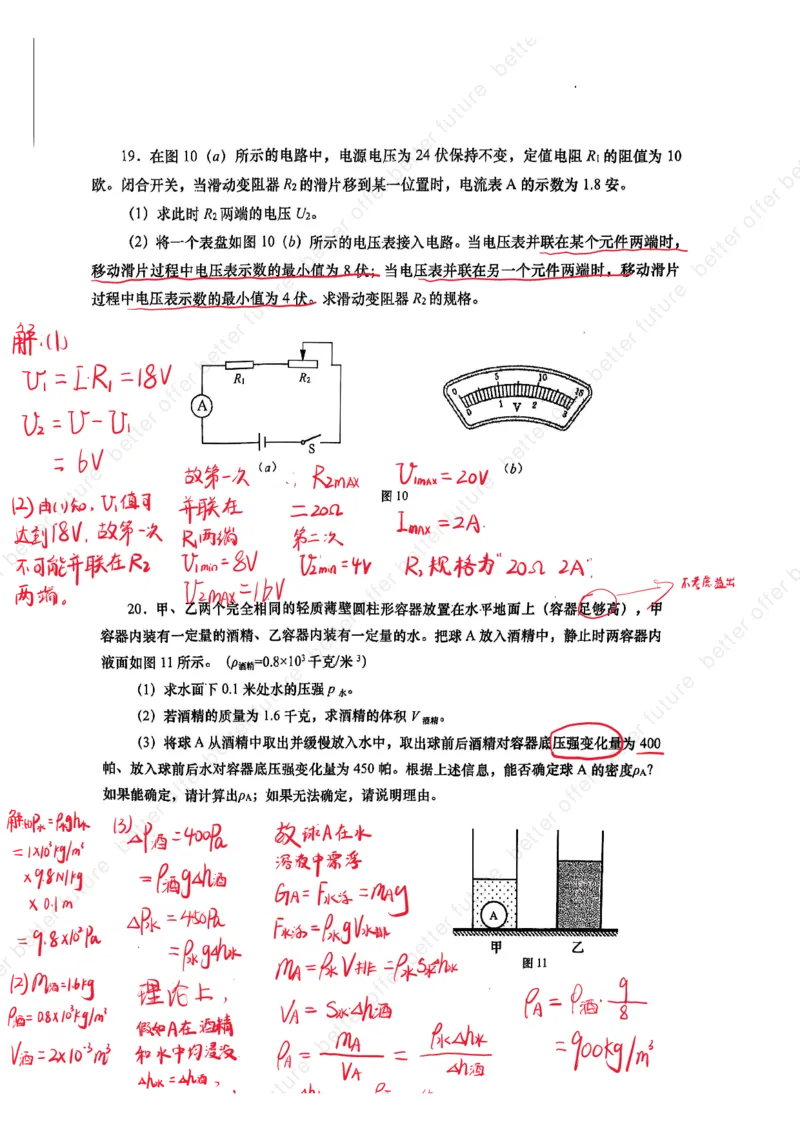 19．在图 10（a）所示的电路中，电源电压为 24 伏保持不变，定值电阻 R₁的阻值为 10
欧。闭合开关，当滑动变阻器 R₂的滑片移到某一位置时，电流表 A 的示数为 1.8 安。
（1）求此时 R₂两端的电压 U₂。
（2）将一个表盘如图 10（b）所示的电压表接入电路。当电压表并联在某个元件两端时，
移动滑片过程中电压表示数的最小值为 8 伏；当电压表并联在另一个元件两端时，移动滑片
过程中电压表示数的最小值为 4 伏。求滑动变阻器 R₂的规格。
解:(1)
U₁=I·R₁=18V
U₂=U-U₁
=6V
R₁
R₂
A
S
(a)
0 5 10 15
0 1 2 3
V
(b)
图 10
(2)由(1)知，U₁值可
达到18V，故第一次
不可能并联在R₂
两端。
故第一次
并联在
R₁两端
U₁min=8V
U₂max=16V
∴ R₂max
=20Ω
第二次
U₂min=4V
U₁max=20V
Imax=2A.
R₂规格为"20Ω 2A".
20．甲、乙两个完全相同的轻质薄壁圆柱形容器放置在水平地面上（容器足够高），甲
不考虑溢出
容器内装有一定量的酒精、乙容器内装有一定量的水。把球 A 放入酒精中，静止时两容器内
液面如图 11 所示。（ρ酒精=0.8×10³千克/米³）
（1）求水面下 0.1 米处水的压强 p水。
（2）若酒精的质量为 1.6 千克，求酒精的体积 V酒精。
（3）将球 A 从酒精中取出并缓慢放入水中，取出球前后酒精对容器底压强变化量为 400
帕、放入球前后水对容器底压强变化量为 450 帕。根据上述信息，能否确定球 A 的密度ρA？
如果能确定，请计算出ρA；如果无法确定，请说明理由。
解:(1)P水=ρ水gh水
=1×10³kg/m³
×9.8N/kg
×0.1m
=9.8×10²Pa
(2)m酒=1.6kg
ρ酒=0.8×10³kg/m³
V酒=2×10⁻³m³
(3)
ΔP酒=400Pa
=ρ酒gΔh酒
ΔP水=450Pa
=ρ水gΔh水
理论上，
假如A在酒精
和水中均浸没
Δh水=Δh酒，
故球A在水
溶液中漂浮
GA=F水浮=mAg
F水浮=ρ水gV水排
mA=ρ水V排=ρ水SΔh水
VA=S·Δh酒
ρA=mA/VA=ρ水Δh水/Δh酒
A
甲
乙
图 11
ρA=ρ酒·9/8
=900kg/m³